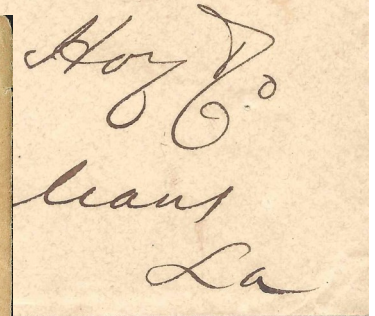 Hoy & Co
leans
La